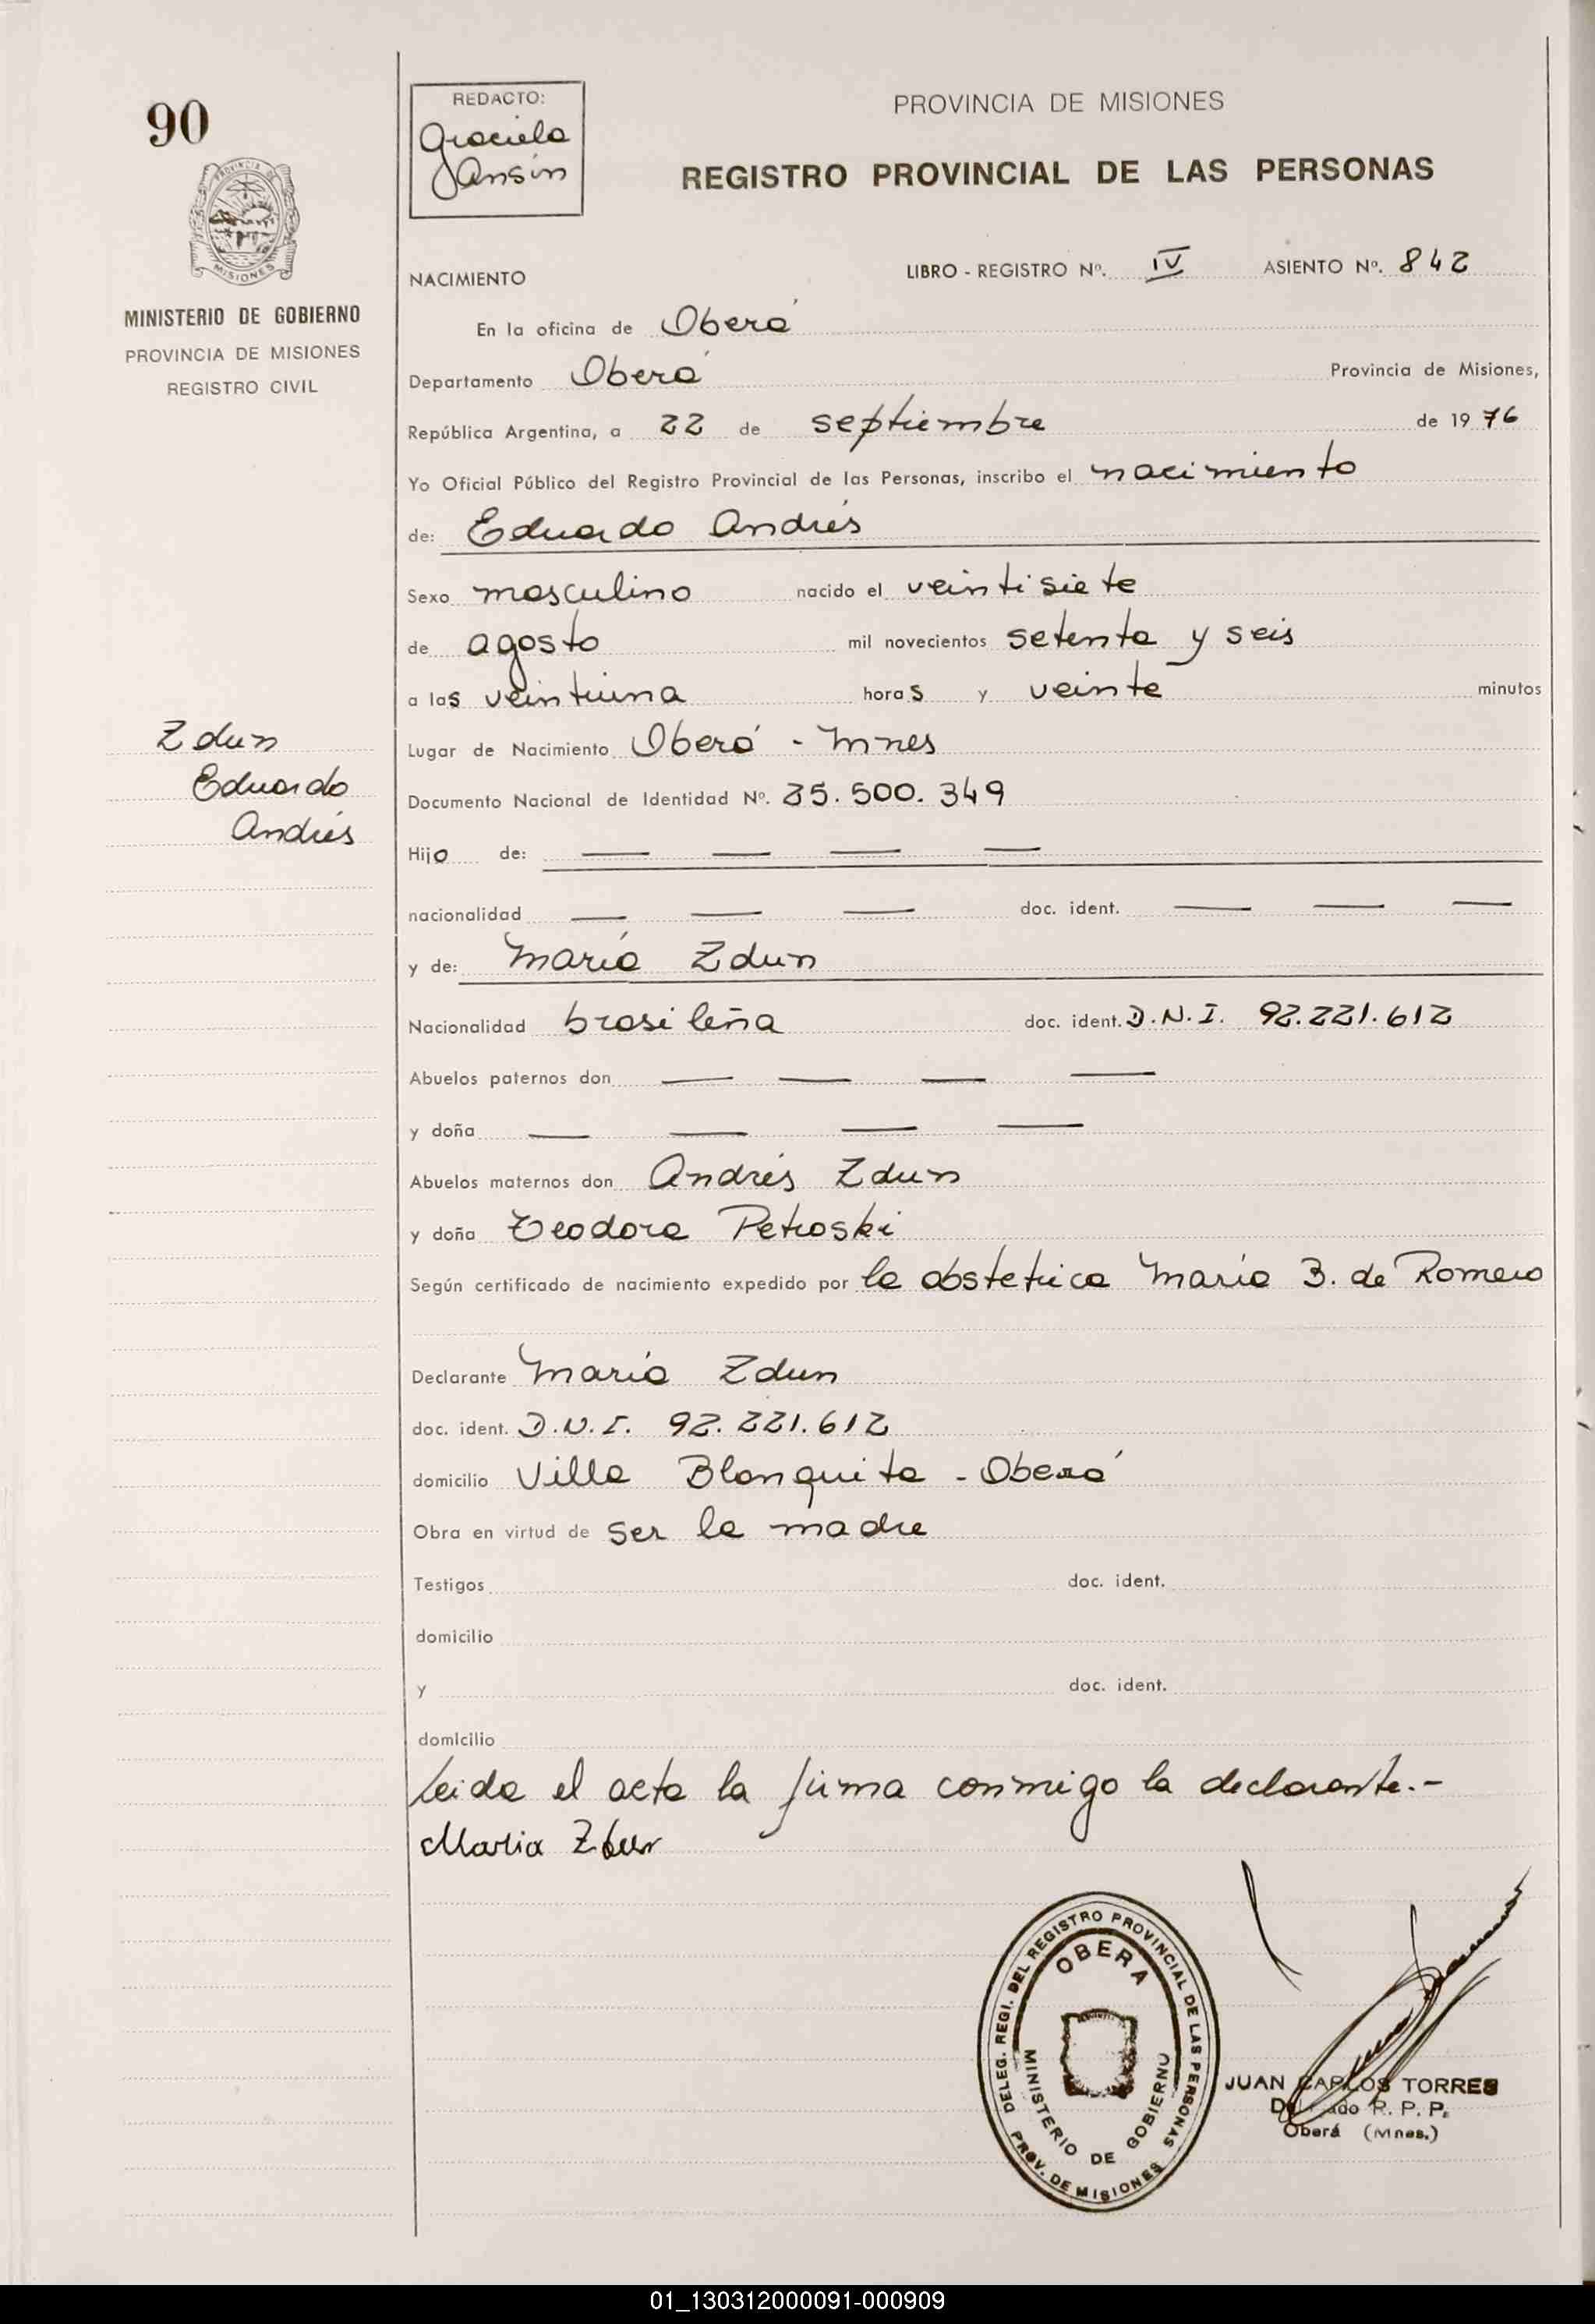 90
PROVINCIA DE
MISIONES
MINISTERIO DE GOBIERNO
PROVINCIA DE MISIONES
REGISTRO CIVIL
Zdun
Eduardo
Andrés
REDACTO:
Graciela
Jansin
PROVINCIA DE MISIONES
REGISTRO PROVINCIAL DE LAS PERSONAS
NACIMIENTO LIBRO - REGISTRO Nº. IV ASIENTO Nº. 842
En la oficina de Oberá
Departamento Oberá Provincia de Misiones,
República Argentina, a 22 de septiembre de 1976
Yo Oficial Público del Registro Provincial de las Personas, inscribo el nacimiento
de: Eduardo Andrés
Sexo masculino nacido el veintisiete
de agosto mil novecientos setenta y seis
a las veintiuna horas y veinte minutos
Lugar de Nacimiento Oberá - Mnes
Documento Nacional de Identidad Nº. 25.500.349
Hijo de: — — — —
nacionalidad — — — doc. ident. — — —
y de: María Zdun
Nacionalidad brasileña doc. ident. D.N.I. 92.221.612
Abuelos paternos don — — — —
y doña — — — —
Abuelos maternos don Andrés Zdun
y doña Teodora Petroski
Según certificado de nacimiento expedido por la obstetrica María B. de Romero
Declarante María Zdun
doc. ident. D.N.I. 92.221.612
domicilio Villa Blanquita - Oberá
Obra en virtud de ser la madre
Testigos doc. ident.
domicilio
y doc. ident.
domicilio
Leida el acta la firma conmigo la declarante.-
Maria Zdun
DELEG. REGI. DEL REGISTRO PROVINCIAL DE LAS PERSONAS
OBERA
MINISTERIO DE GOBIERNO
PROV. DE MISIONES
JUAN CARLOS TORRES
Delegado R. P. P.
Oberá (Mnes.)
01_130312000091-000909